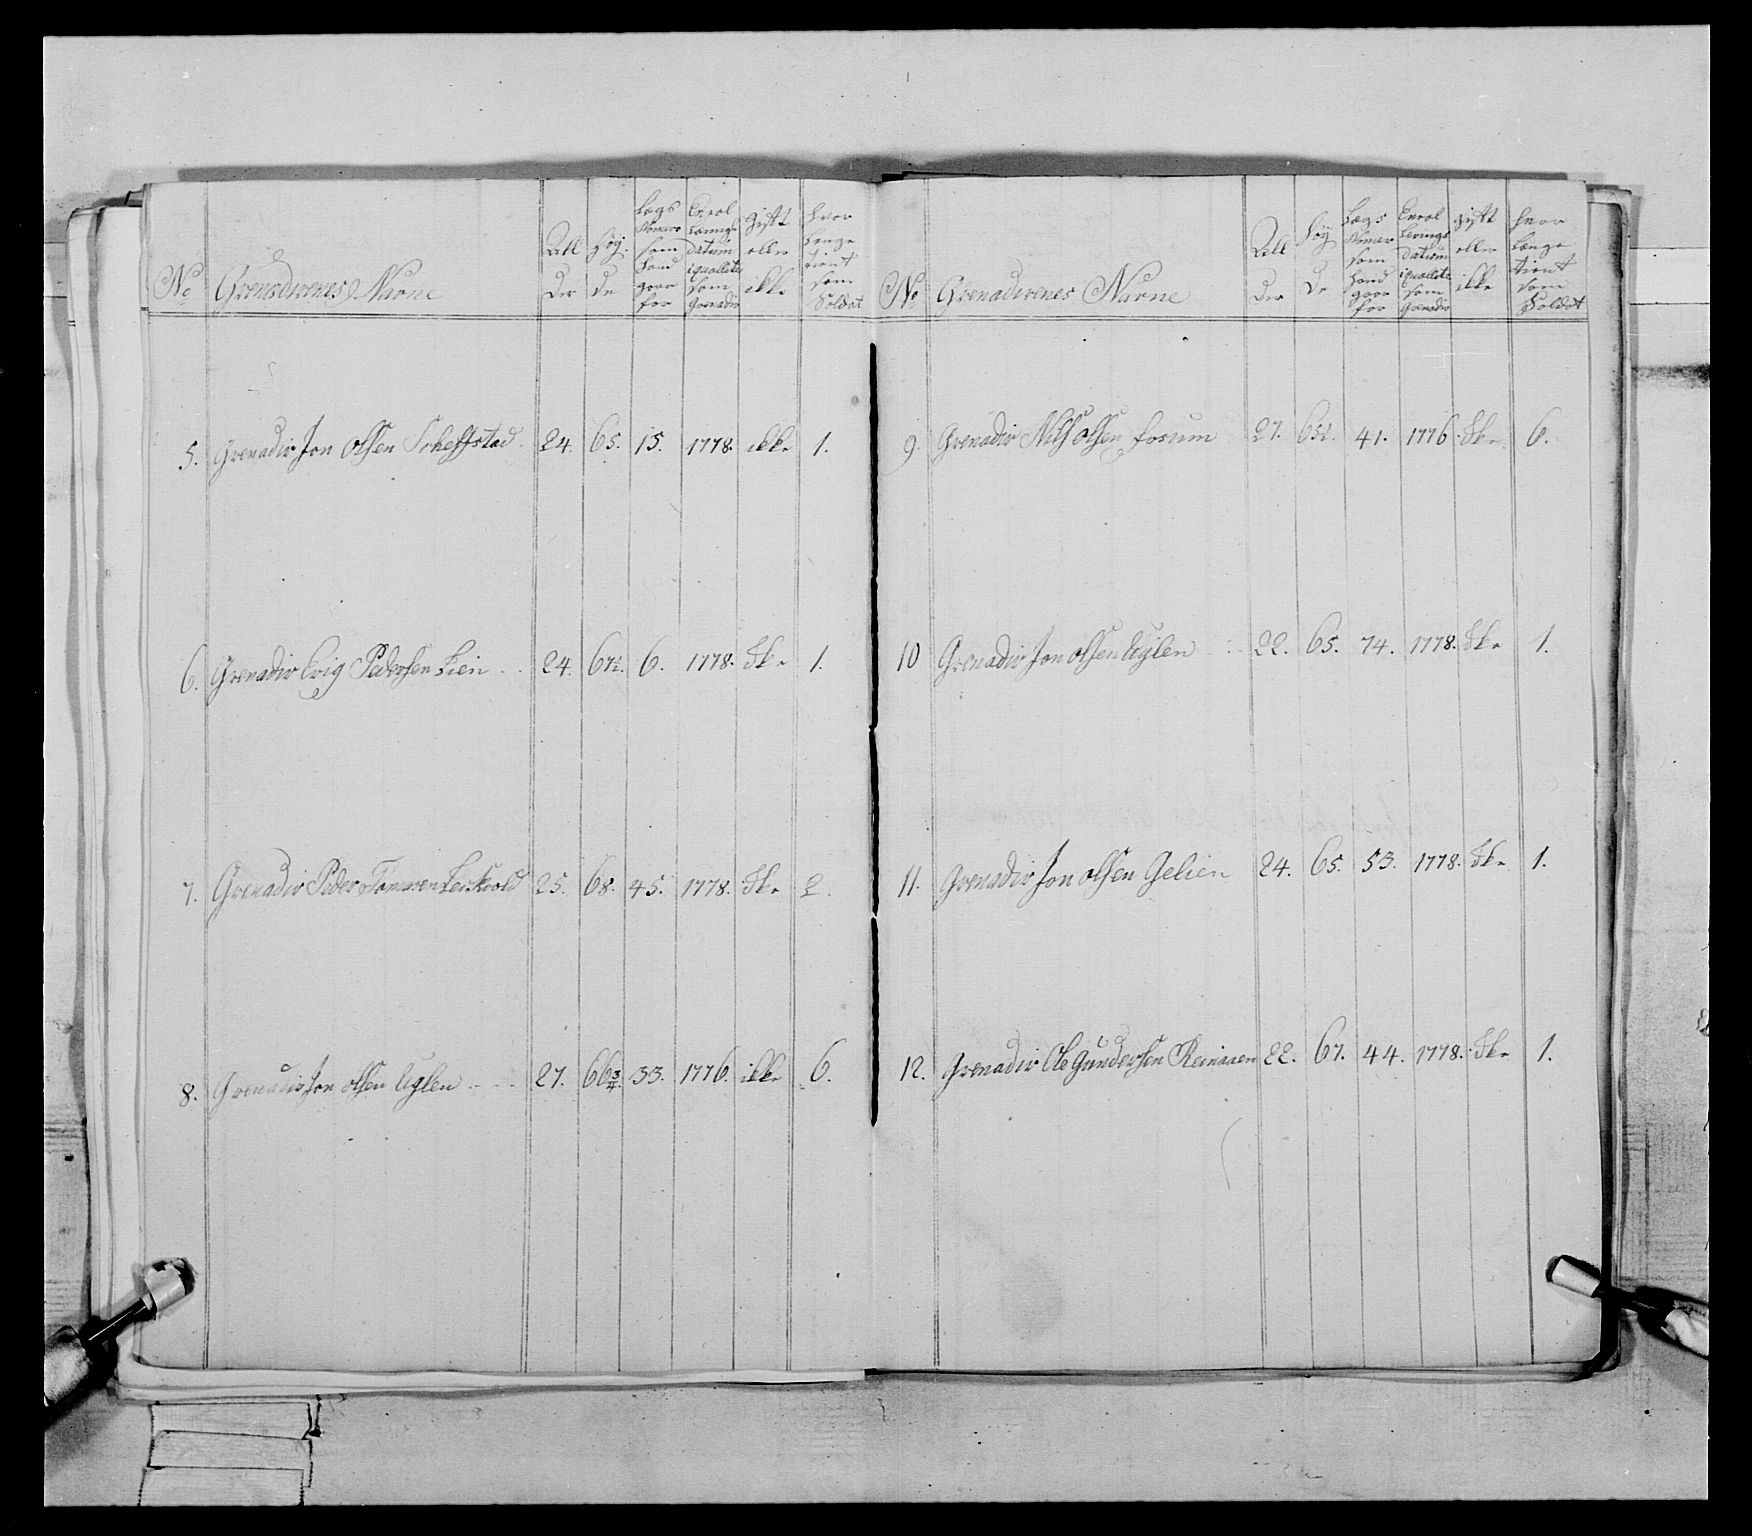 No Grenadirenes Navne Allder Høyde Lægs Nomer som hand gaar for Enrolleerings datum i qualitet som Grenadir gift eller ikke hvor længe tient som Soldat
5. Grenadir Jon Olsen Scheffstad 24. 65. 15. 1778. ikke 1.
6. Grenadir Erig Pedersen Lien 24. 67½. 6. 1778. Ikke 1.
7. Grenadir Peder Tommesen Leikvold 25. 68. 45. 1778. Ikke 2.
8. Grenadir Jon Olsen Uglen 27. 66¾. 33. 1776. ikke 6.
No Grenadirenes Navne Allder Høyde Lægs Nomer som hand gaar for Enrolleerings datum i qualitet som Grenadir gift eller ikke hvor længe tient som Soldat
9. Grenadir Nils Olsen forum 27. 65½. 41. 1776. Ikke 6.
10 Grenadir Jon Olsen Uglen 22. 65. 74. 1778. Ikke 1.
11. Grenadir Jon Olsen Gelien 24. 65. 53. 1778. Ikke 1.
12. Grenadir Ole Gundersen Reinaaen 22. 67. 44. 1778. Ikke 1.